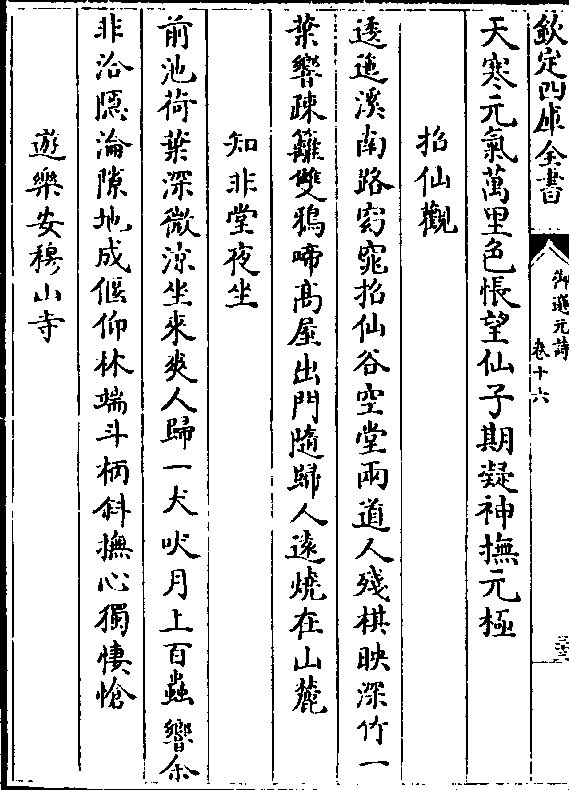 欽定四庫全書
御選元詩
卷十六
天寒元氣萬里色悵望仙子期凝神撫元極
招仙觀
逶迤溪南路窈窕招仙谷空堂兩道人殘棋映深竹一
葉響疎籬雙鴉啼高屋出門隨歸人遠燒在山麓
知非堂夜坐
前池荷葉深微涼坐來爽人歸一犬吠月上百蟲響余
非洽隱淪隙地成偃仰林端斗柄斜撫心獨悽愴
遊樂安穆山寺